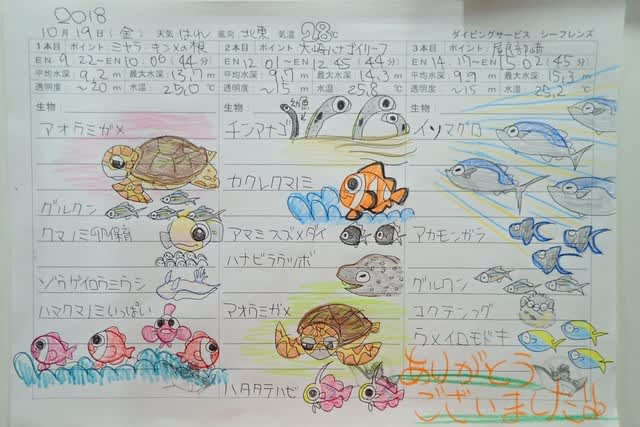 2018
10月19日(金) 天気 はれ 風向 北東 気温 28℃ ダイビングサービス シーフレンズ
1本目 ポイント ミヤラ キンメの根
EN 9:22~EX 10:06(44分)
平均水深: 9.2m 最大水深: 13.7m
透明度 ~20m 水温 25.0℃
生物:
アオウミガメ
グルクン
クマノミ
ゾウゲイロウミウシ
ハマクマノミいっぱい
2本目 ポイント 大崎ハナゴイリーフ
EN 12:01~EX 12:45(44分)
平均水深: 9.7m 最大水深: 14.3m
透明度 ~15m 水温 25.8℃
生物:
チンアナゴ
カクレクマノミ
アマミスズメダイ
ハナビラウツボ
アオウミガメ
ハタタテハゼ
3本目 ポイント 屋良部崎
EN 14:17~EX 15:02(45分)
平均水深: 9.9m 最大水深: 15.3m
透明度 ~15m 水温 25.2℃
生物:
イソマグロ
アカモンガラ
グルクン
コクテンフグ
ウメイロモドキ
ありがとう
ございました!!